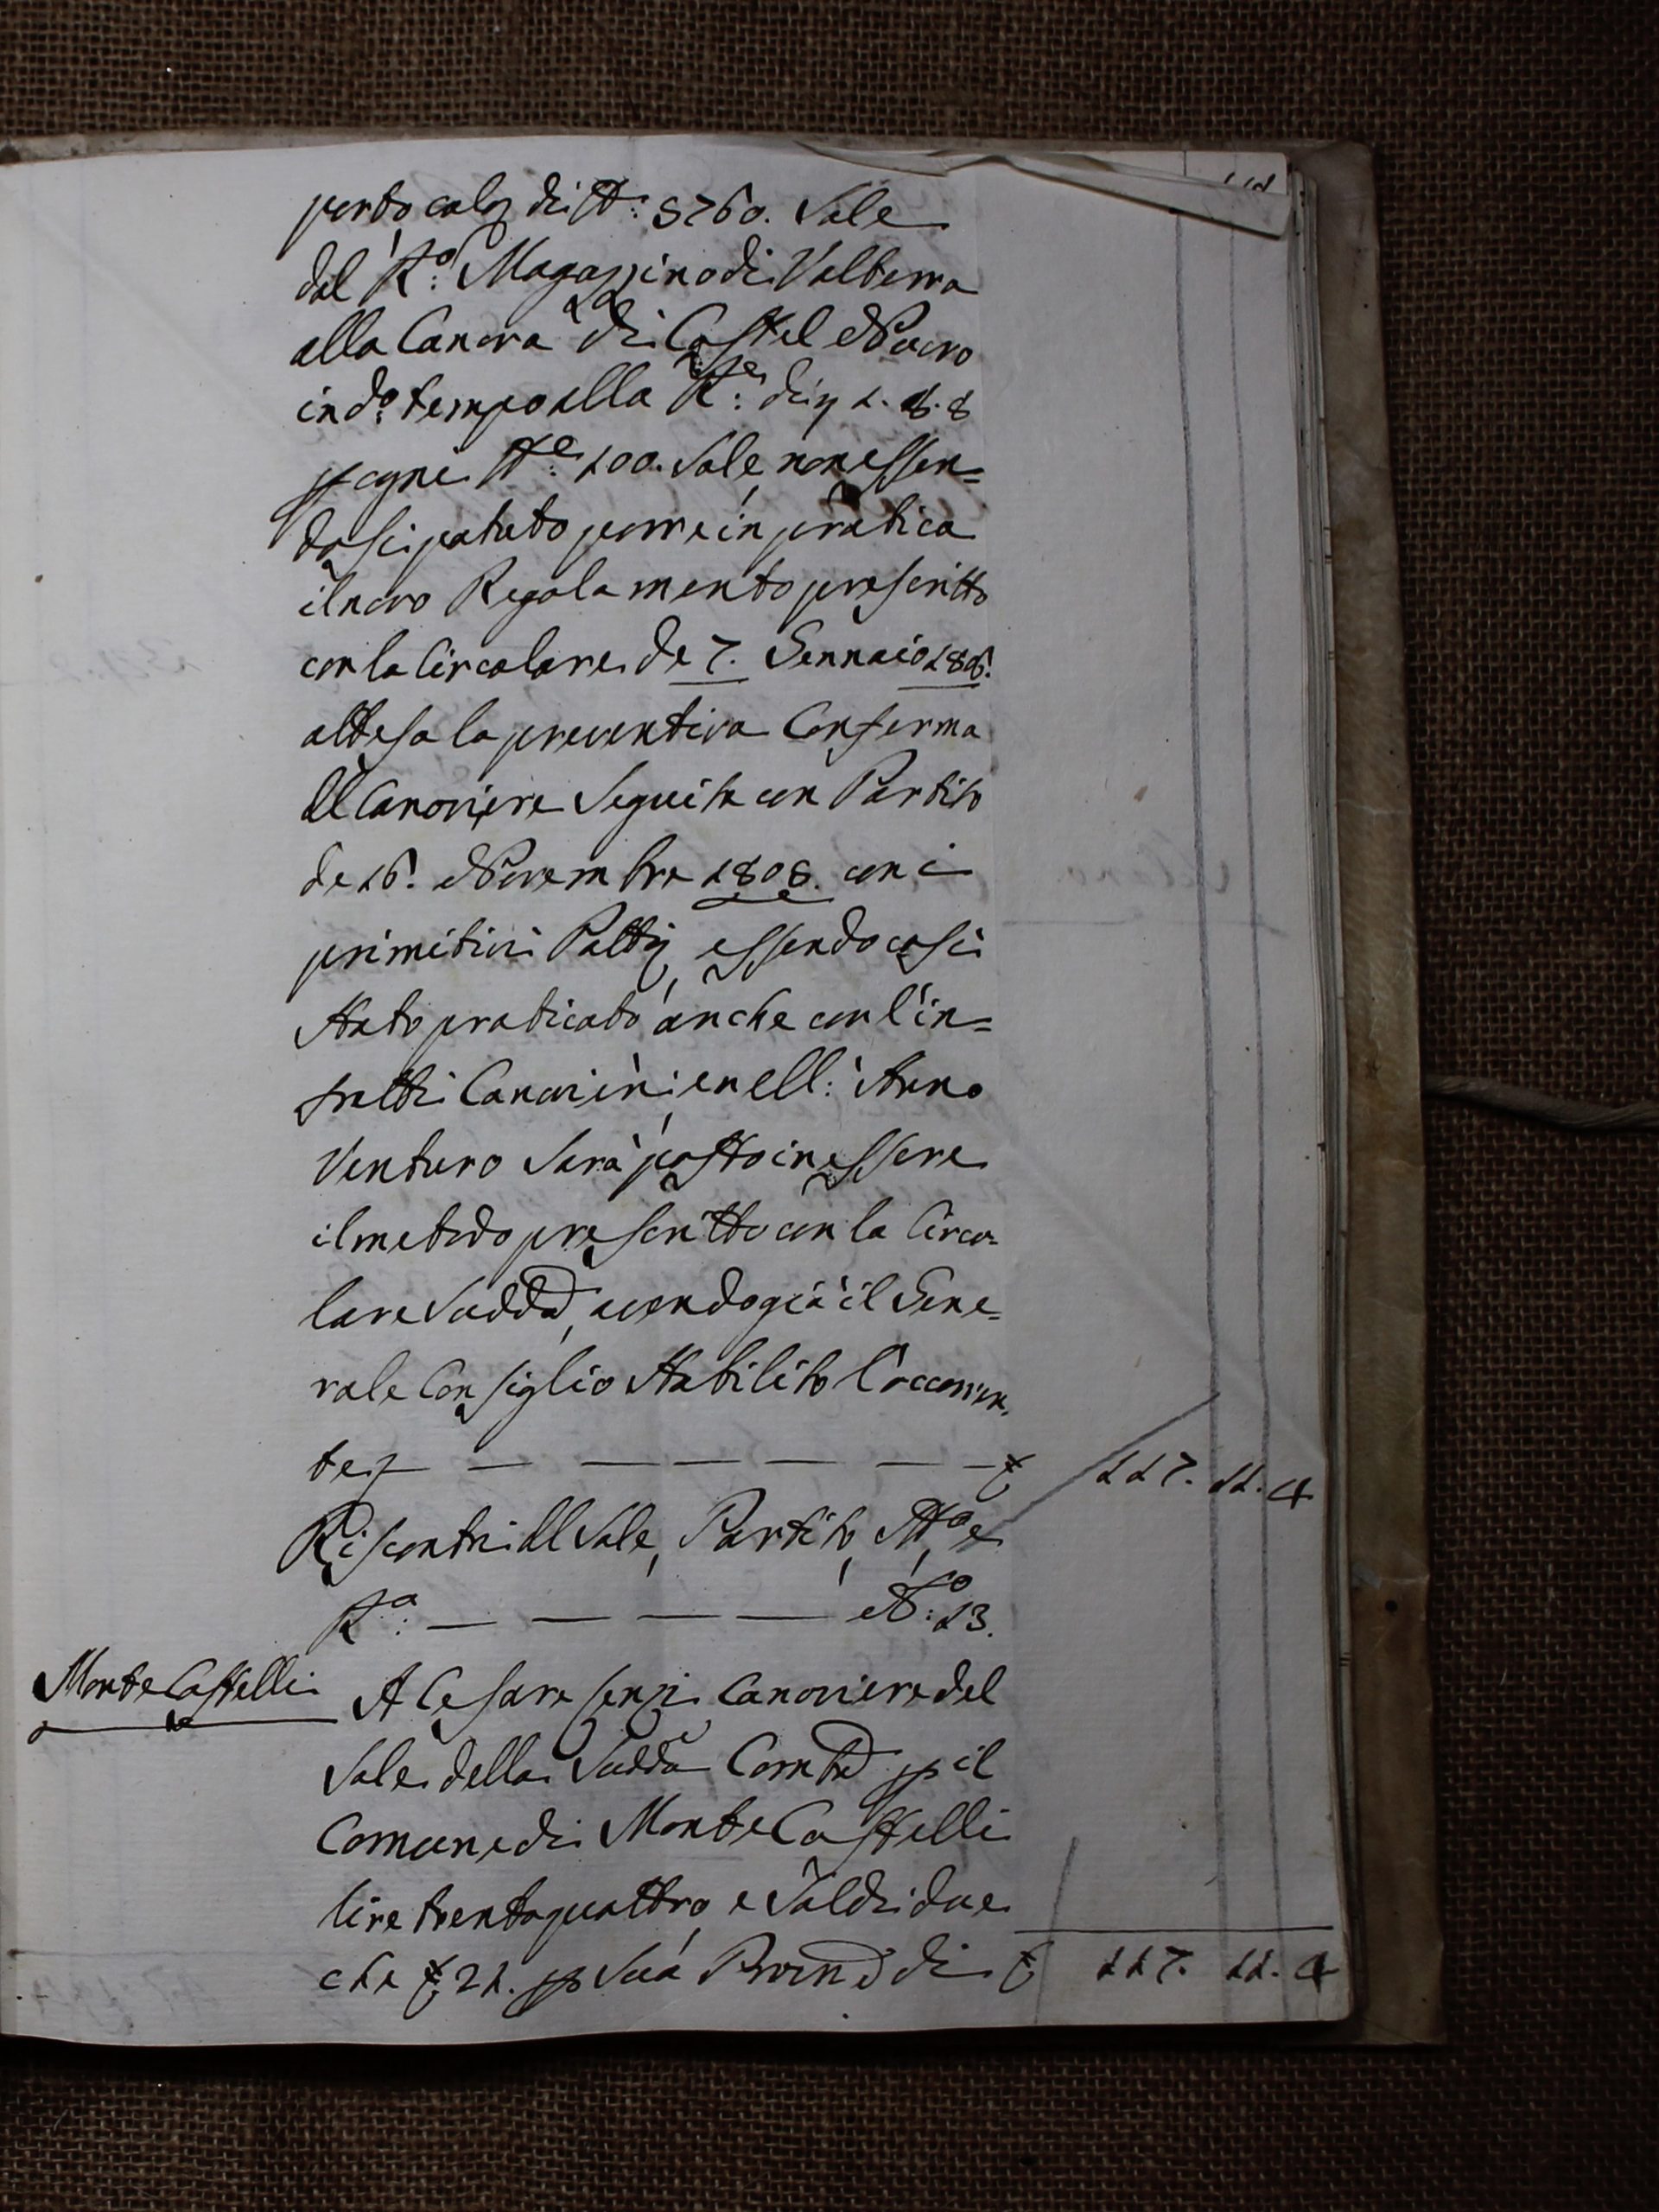 porto calo di lt: 5760. Sale
dal R.o Magazzino di Volterra
alla Canova di Castel Nuovo
in d.o tempo alla R.e di 1. 8. 8
p ogni lt.e 100. Sale, non essen=
dosi potuto porre in pratica
il novo Regolamento prescritto
con la Circolare de 7. Gennaio 1806.
attesa la preventiva Conferma
del Canoviere Seguita con Partito
de 16. Novembre 1808. con i
primitivi Patti, essendo così
stato praticato anche con l'in=
fratti Canovieri, e nell: Anno
Venturo Sarà posto in essere
il metodo prescritto con la Circo=
lare Sudd.a, avendo già il Gene=
rale Consiglio Stabilito l'occorren,
te, — — — — — — £ 117. 11. 4
Riscontri del Sale, Partito, Att.o e
R.a — — — — N.o 13.
Monte Castelli
A Cesare Cenzi Canoviere del
Sale della Sudd.a Com.tà p il
Comune di Monte Castelli
lire trentaquattro, e Soldi due
che £ 21. p Sua Provv.e di £ 117. 11. 4